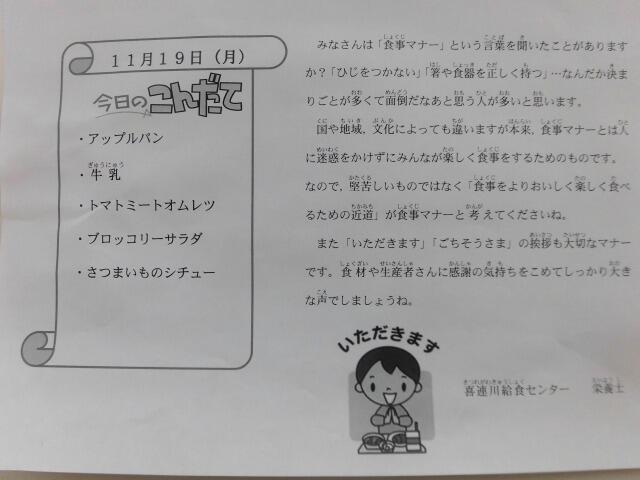 11月19日(月)
今日のこんだて
・アップルパン
・牛乳
・トマトミートオムレツ
・ブロッコリーサラダ
・さつまいものシチュー
みなさんは「食事マナー」という言葉を聞いたことがあります
か?「ひじをつかない」「箸や食器を正しく持つ」…なんだか決ま
りごとが多くて面倒だなあと思う人が多いと思います。
国や地域,文化によっても違いますが本来,食事マナーとは人
に迷惑をかけずにみんなが楽しく食事をするためのものです。
なので,堅苦しいものではなく「食事をよりおいしく楽しく食べ
るための近道」が食事マナーと考えてくださいね。
また「いただきます」「ごちそうさま」の挨拶も大切なマナー
です。食材や生産者さんに感謝の気持ちをこめてしっかり大き
な声でしましょうね。
いただきます
喜連川給食センター 栄養士